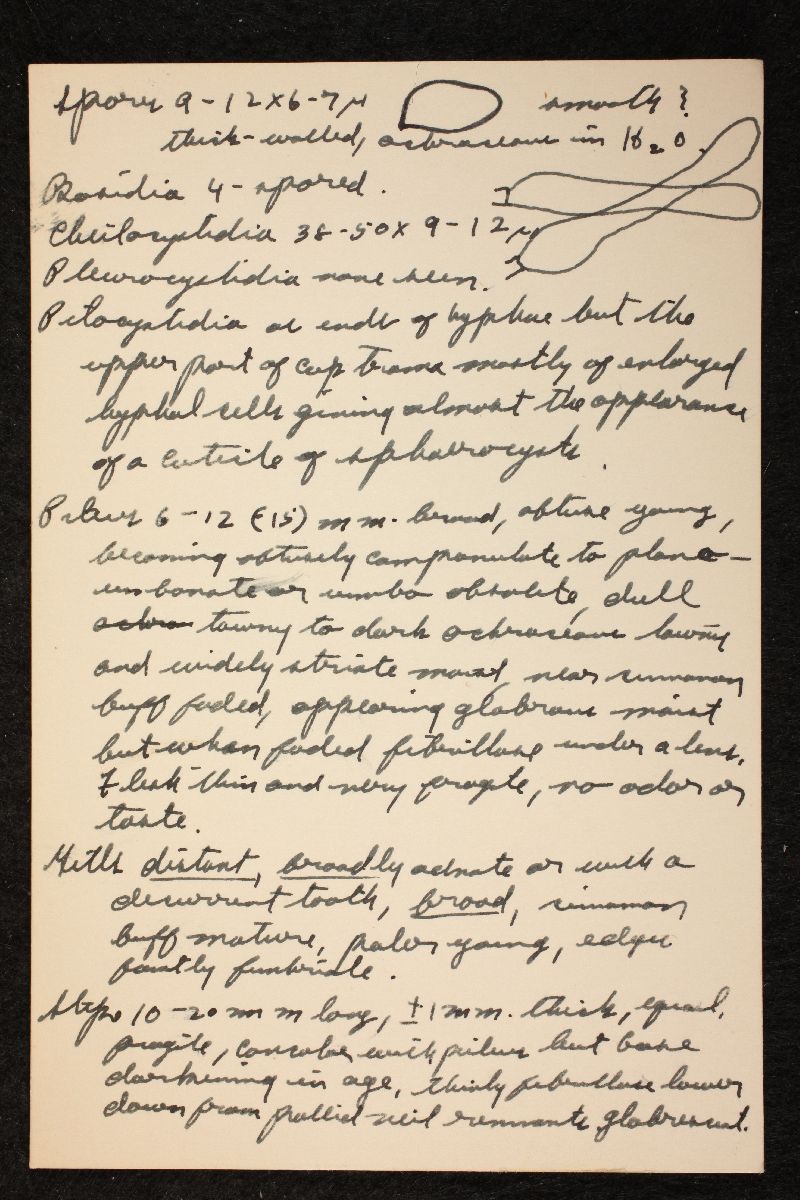 Spores 9-12x6-7µ smooth?
thick-walled, ochraceous in H₂O.
Basidia 4-spored.
Cheilocystidia 38-50x9-12µ
Pleurocystidia none seen.
Pilocystidia as ends of hyphae but the
upper part of cap trama mostly of enlarged
hyphal cells giving almost the appearance
of a cuticle of sphaerocysts.
Pileus 6-12 (15) mm. broad, obtuse young,
becoming obtusely campanulate to plano-
umbonate or umbo obsolete, dull
ochra tawny to dark ochraceous tawny
and widely striate moist, near cinnamon
buff faded, appearing glabrous moist
but when faded fibrillose under a lens.
Flesh thin and very fragile, no odor or
taste.
Gills distant, broadly adnate or with a
decurrent tooth, broad, cinnamon
buff mature, paler young, edges
faintly fimbriate.
Stipe 10-20 mm long, ±1mm. thick, equal,
fragile, concolor with pileus but base
darkening in age, thinly fibrillose lower
down from pallid veil remnants, glabrescent.